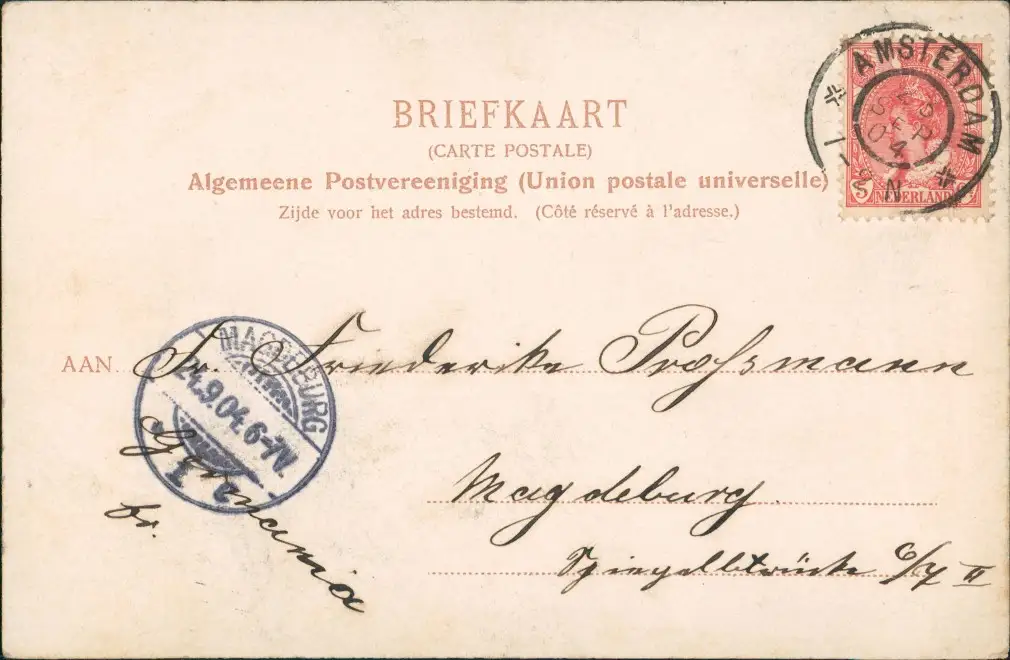 BRIEFKAART
(CARTE POSTALE)
Algemeene Postvereeniging (Union postale universelle)
Zijde voor het adres bestemd. (Côté réservé à l'adresse.)
AMSTERDAM
SEP
04
N
5 NEDERLAND
AAN Fr. Friederike Proßmann
MAGDEBURG
24.9.04.6-7V.
Germania
Magdeburg.
6/7 II